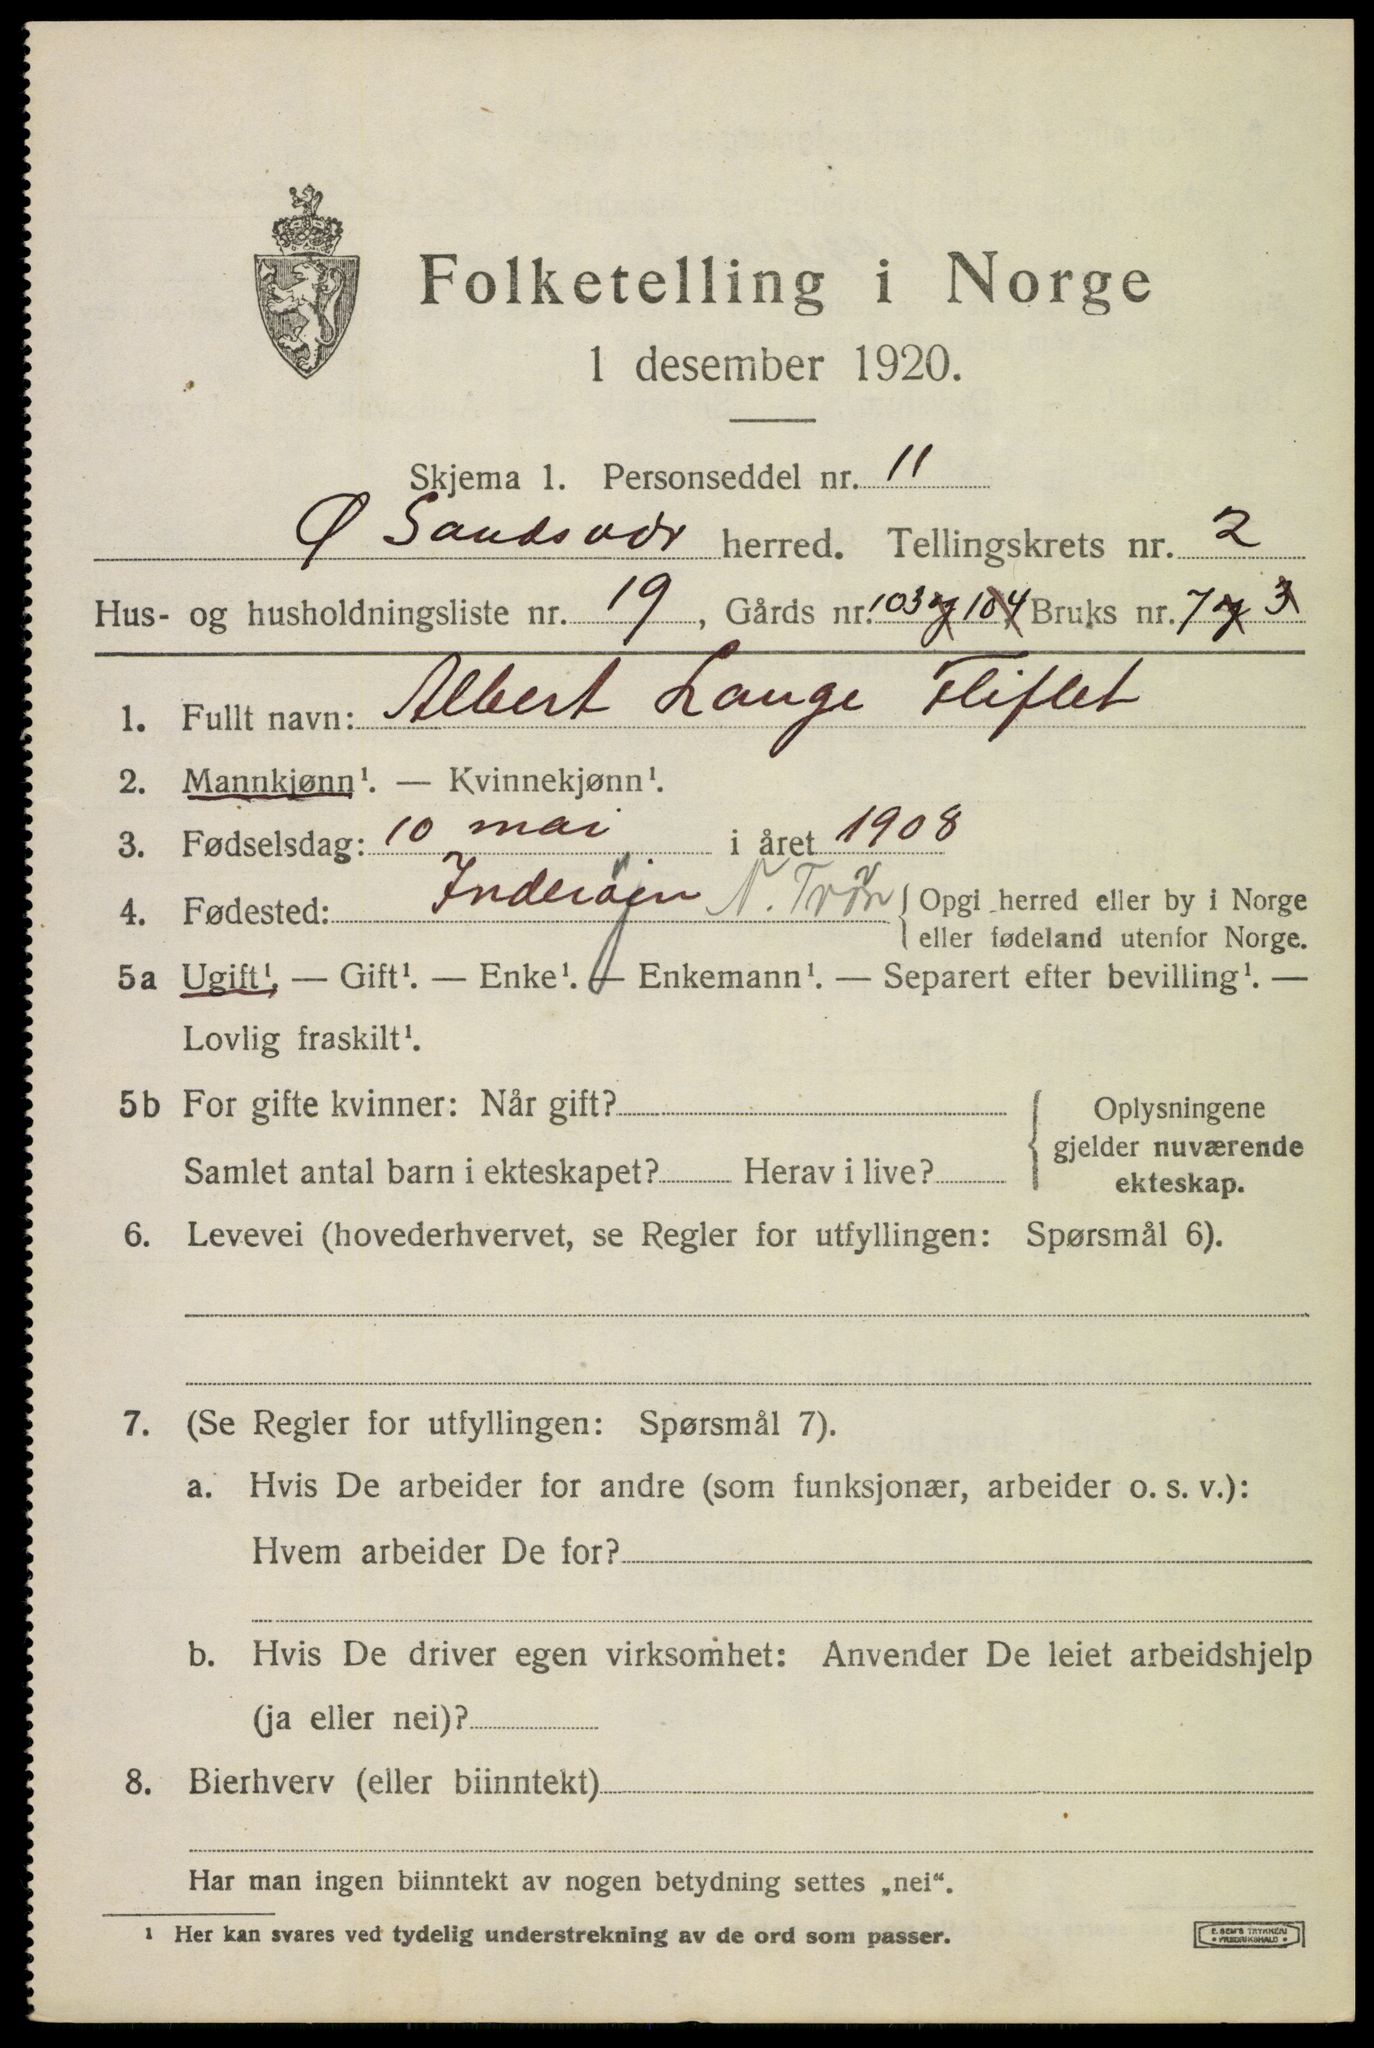 Folketelling i Norge
1 desember 1920.
Skjema 1. Personseddel nr. 11
Ø Sandsvær herred. Tellingskrets nr. 2
Hus- og husholdningsliste nr. 19, Gårds nr. 103 og 104 Bruks nr. 7 og 3
1. Fullt navn: Albert Lange Fliflet
2. Mannkjønn¹. — Kvinnekjønn¹.
3. Fødselsdag: 10 mai i året 1908
4. Fødested: Inderøjen N. Trøn { Opgi herred eller by i Norge
eller fødeland utenfor Norge.
5a Ugift¹. — Gift¹. — Enke¹. — Enkemann¹. — Separert efter bevilling¹. —
Lovlig fraskilt¹.
5b For gifte kvinner: Når gift?
Samlet antal barn i ekteskapet? Herav i live?
{ Oplysningene
gjelder nuværende
ekteskap.
6. Levevei (hovederhvervet, se Regler for utfyllingen: Spørsmål 6).
7. (Se Regler for utfyllingen: Spørsmål 7).
a. Hvis De arbeider for andre (som funksjonær, arbeider o. s. v.):
Hvem arbeider De for?
b. Hvis De driver egen virksomhet: Anvender De leiet arbeidshjelp
(ja eller nei)?
8. Bierhverv (eller biinntekt)
Har man ingen biinntekt av nogen betydning settes „nei“.
¹ Her kan svares ved tydelig understrekning av de ord som passer.
E. SEM'S TRYKKERI
• FREDRIKSHALD •